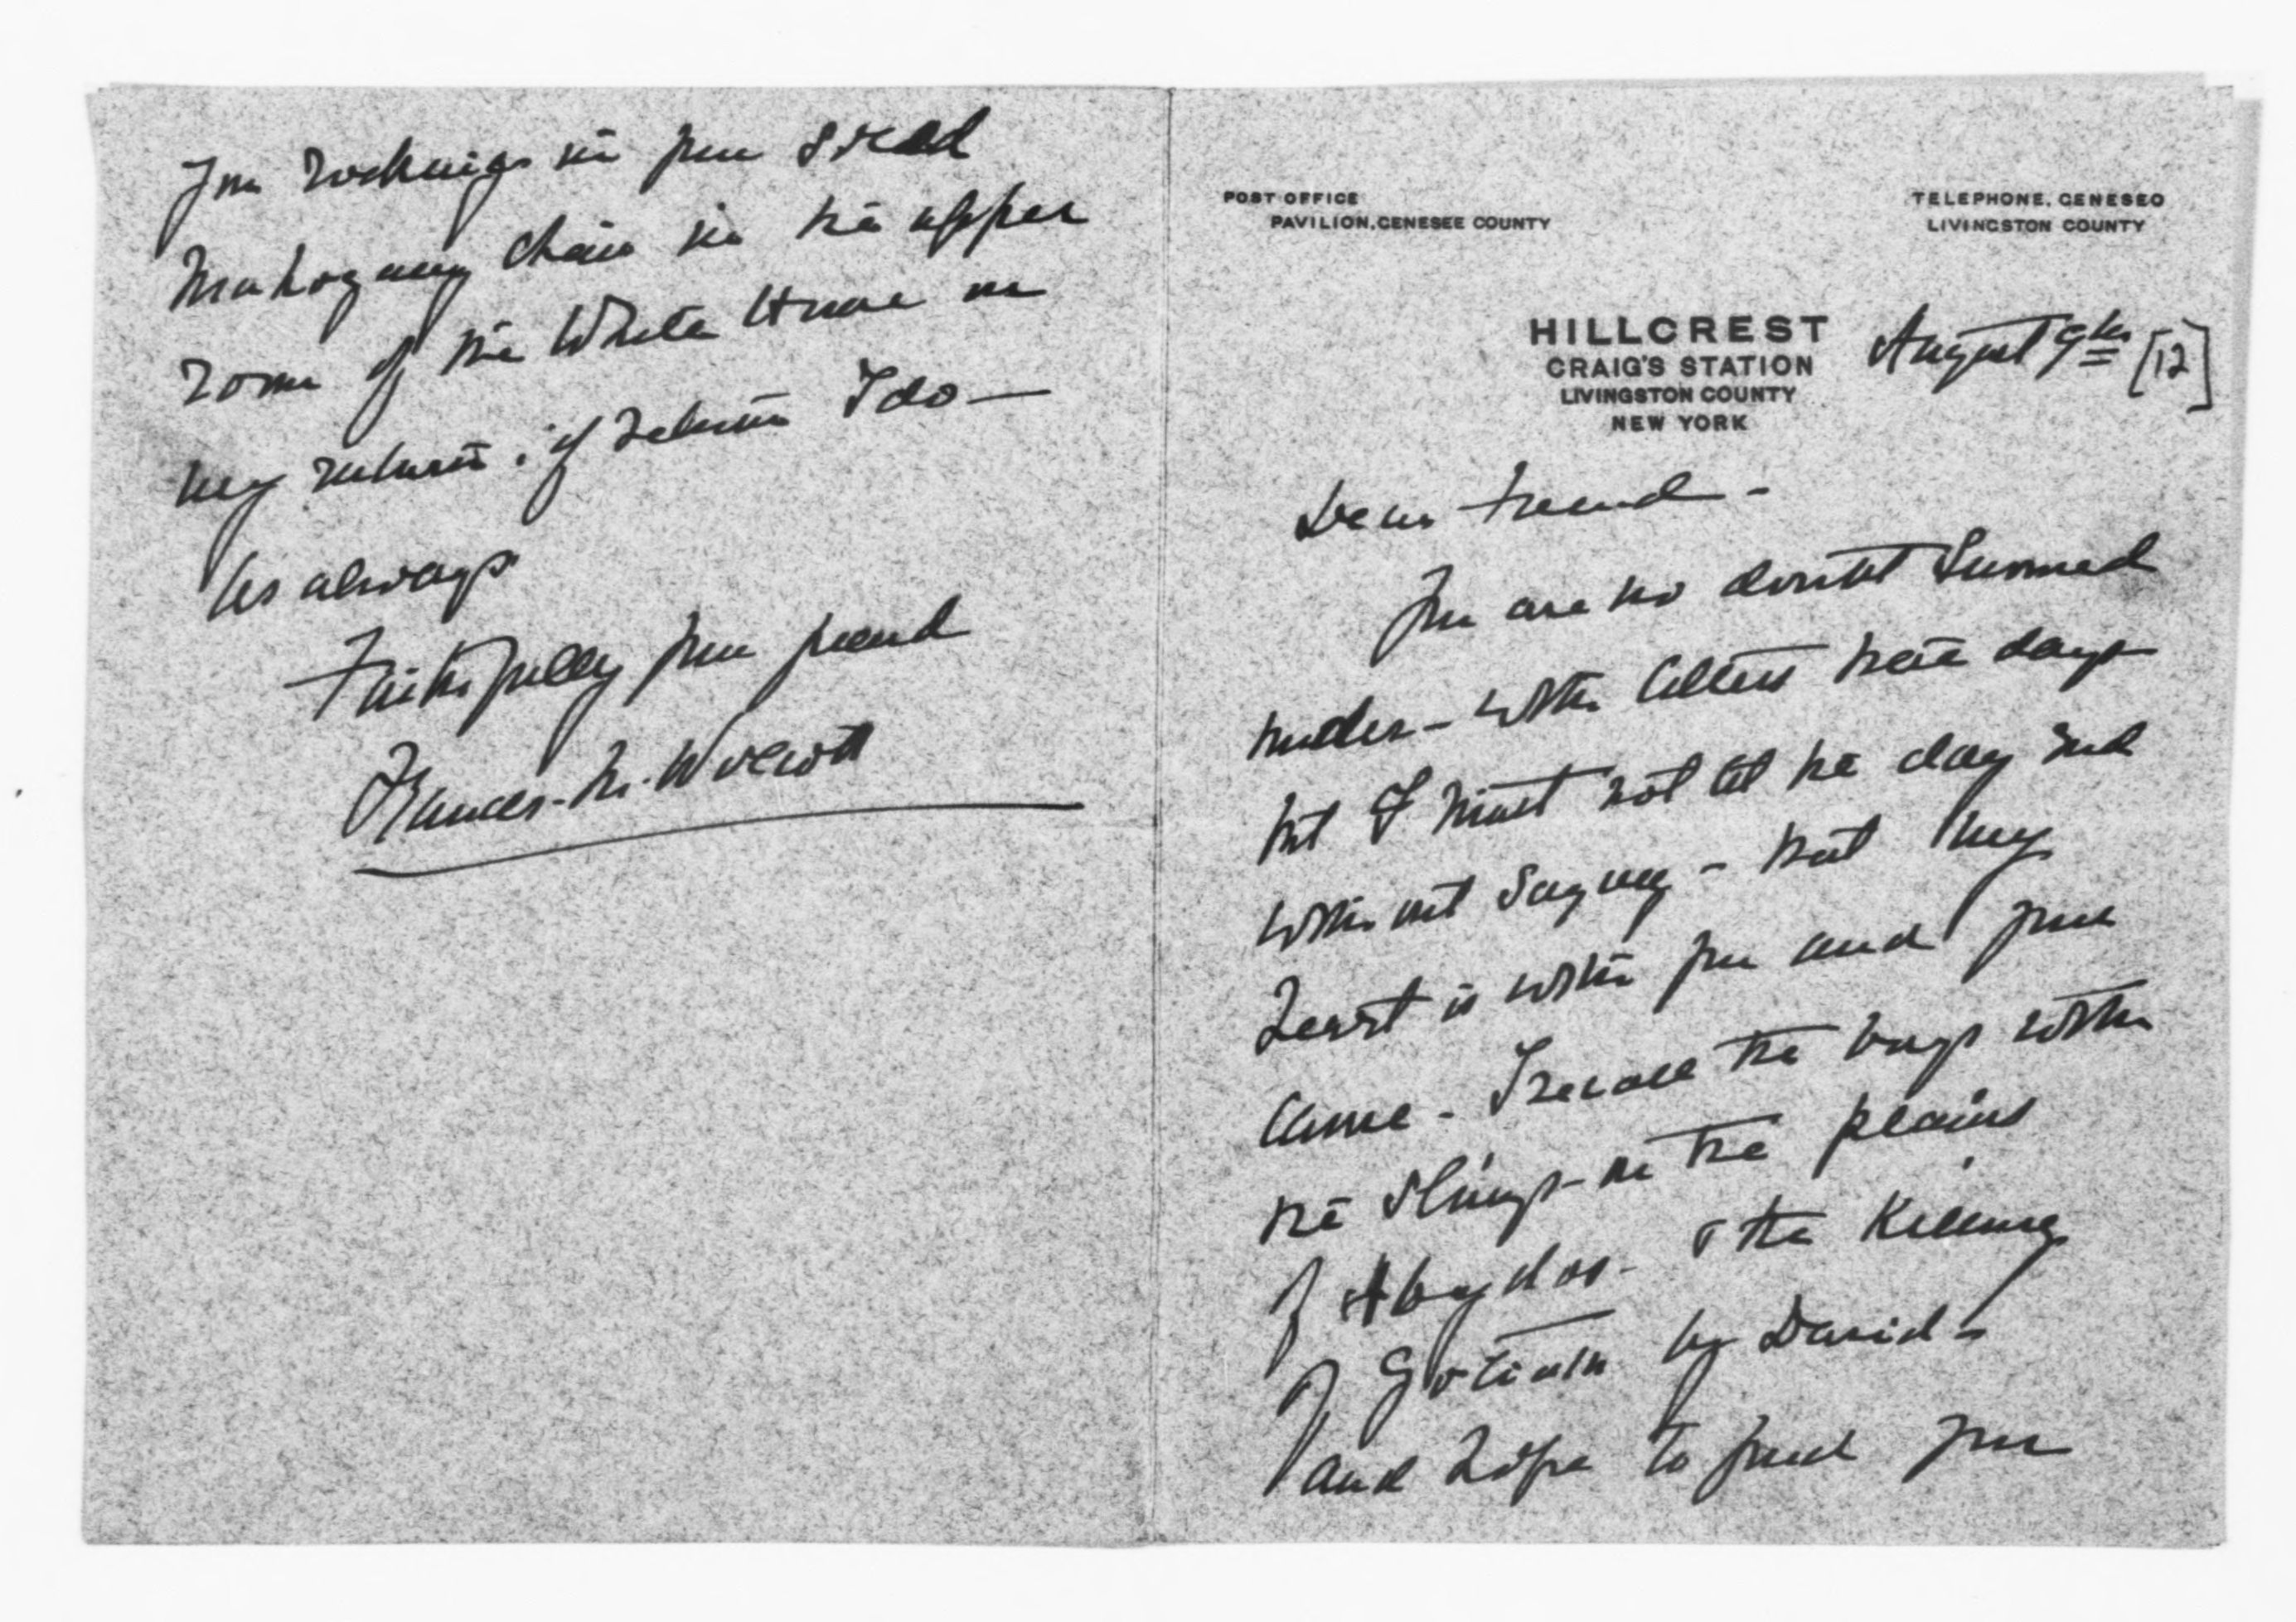 POST OFFICE
PAVILION, GENESEE COUNTY
TELEPHONE, GENESEO
LIVINGSTON COUNTY
HILLCREST
CRAIG'S STATION
LIVINGSTON COUNTY
NEW YORK
August 9th [12]
Dear Friend -
You are no doubt snowed
under - with letters these days
but I must not let the day end
without saying - that my
heart is with you and your
cause - I recall the boys with
the slings - on the plains
of Abydos - & the killing
of Goliath by David -
and hope to find you
You rocking in your
mahogany chair in the upper
room of the White House on
my return, if return I do -
As always
Faithfully your friend
Frances M. Wolcott